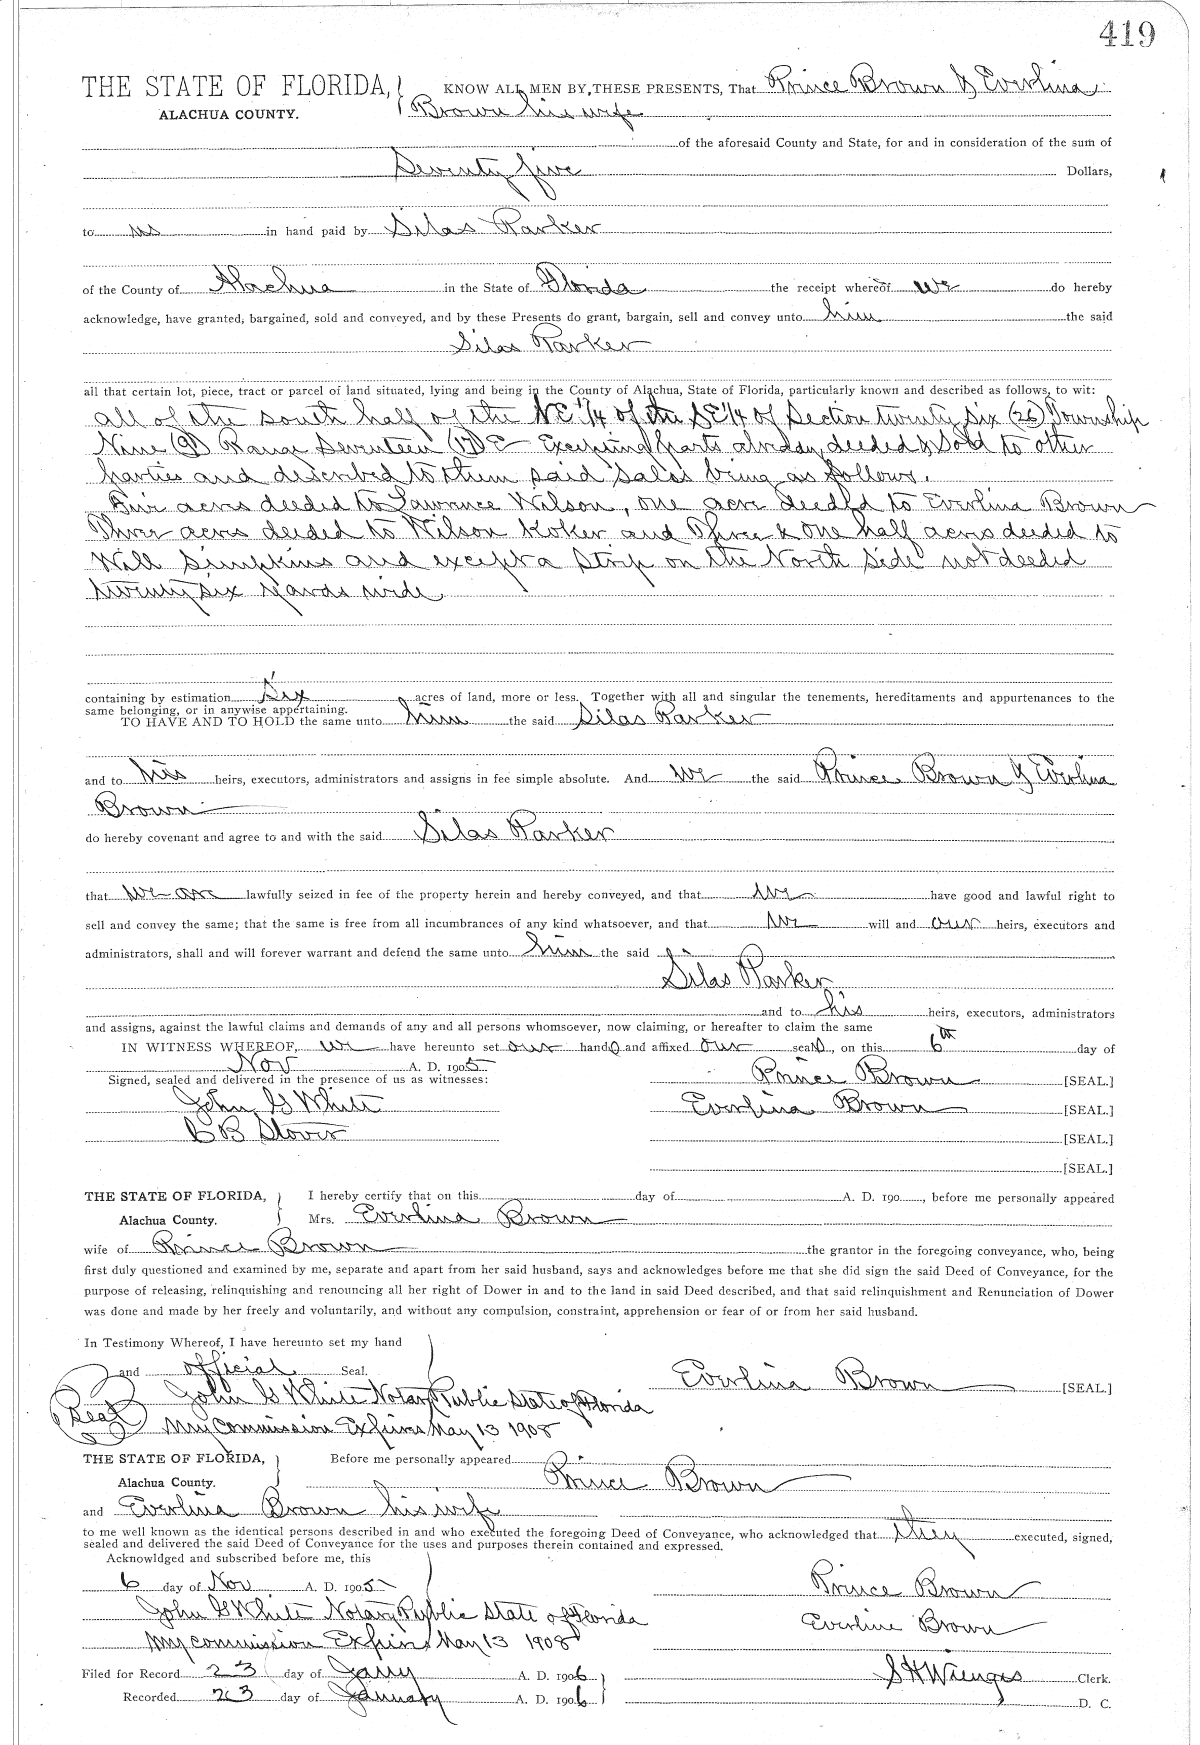 419
THE STATE OF FLORIDA, KNOW ALL MEN BY THESE PRESENTS, That Prince Brown & Everlina
ALACHUA COUNTY. Brown his wife
of the aforesaid County and State, for and in consideration of the sum of
Seventy five Dollars,
to us in hand paid by Silas Parker
of the County of Alachua in the State of Florida the receipt whereof we do hereby
acknowledge, have granted, bargained, sold and conveyed, and by these Presents do grant, bargain, sell and convey unto him the said
Silas Parker
all that certain lot, piece, tract or parcel of land situated, lying and being in the County of Alachua, State of Florida, particularly known and described as follows, to wit:
all of the south half of the NE 1/4 of the SE 1/4 of Section twenty six (26) Township
Nine (9) Range Seventeen (17) E Excepting parts already deeded & Sold to other
parties and described to them said Sales being as follows.
Five acres deeded to Lawrence Wilson, one acre deeded to Everlina Brown
Three acres deeded to Wilson Koker and Three & one half acres deeded to
Will Simpkins and except a Strip on the North Side not deeded
twenty six yards wide
containing by estimation Six acres of land, more or less. Together with all and singular the tenements, hereditaments and appurtenances to the
same belonging, or in anywise appertaining.
TO HAVE AND TO HOLD the same unto him the said Silas Parker
and to his heirs, executors, administrators and assigns in fee simple absolute. And we the said Prince Brown & Everlina
Brown
do hereby covenant and agree to and with the said Silas Parker
that we are lawfully seized in fee of the property herein and hereby conveyed, and that we have good and lawful right to
sell and convey the same; that the same is free from all incumbrances of any kind whatsoever, and that we will and our heirs, executors and
administrators, shall and will forever warrant and defend the same unto him the said
Silas Parker
and to his heirs, executors, administrators
and assigns, against the lawful claims and demands of any and all persons whomsoever, now claiming, or hereafter to claim the same
IN WITNESS WHEREOF, we have hereunto set our hands and affixed our seals, on this 6th day of
Nov A. D. 1905
Signed, sealed and delivered in the presence of us as witnesses: Prince Brown [SEAL.]
John G White Everlina Brown [SEAL.]
C B Stover [SEAL.]
[SEAL.]
THE STATE OF FLORIDA, I hereby certify that on this day of A. D. 190 , before me personally appeared
Alachua County. Mrs. Everlina Brown
wife of Prince Brown the grantor in the foregoing conveyance, who, being
first duly questioned and examined by me, separate and apart from her said husband, says and acknowledges before me that she did sign the said Deed of Conveyance, for the
purpose of releasing, relinquishing and renouncing all her right of Dower in and to the land in said Deed described, and that said relinquishment and Renunciation of Dower
was done and made by her freely and voluntarily, and without any compulsion, constraint, apprehension or fear of or from her said husband.
In Testimony Whereof, I have hereunto set my hand
and official Seal. Everlina Brown [SEAL.]
Seal John G White Notary Public State of Florida
My Commission Expires May 13 1908
THE STATE OF FLORIDA, Before me personally appeared Prince Brown
Alachua County.
and Everlina Brown his wife
to me well known as the identical persons described in and who executed the foregoing Deed of Conveyance, who acknowledged that they executed, signed,
sealed and delivered the said Deed of Conveyance for the uses and purposes therein contained and expressed.
Acknowldged and subscribed before me, this
6 day of Nov A. D. 1905 Prince Brown
John G White Notary Public State of Florida Everline Brown
My commission Expires May 13 1908
Filed for Record 23 day of Jany A. D. 1906 S H Wienges Clerk.
Recorded 23 day of January A. D. 1906 D. C.